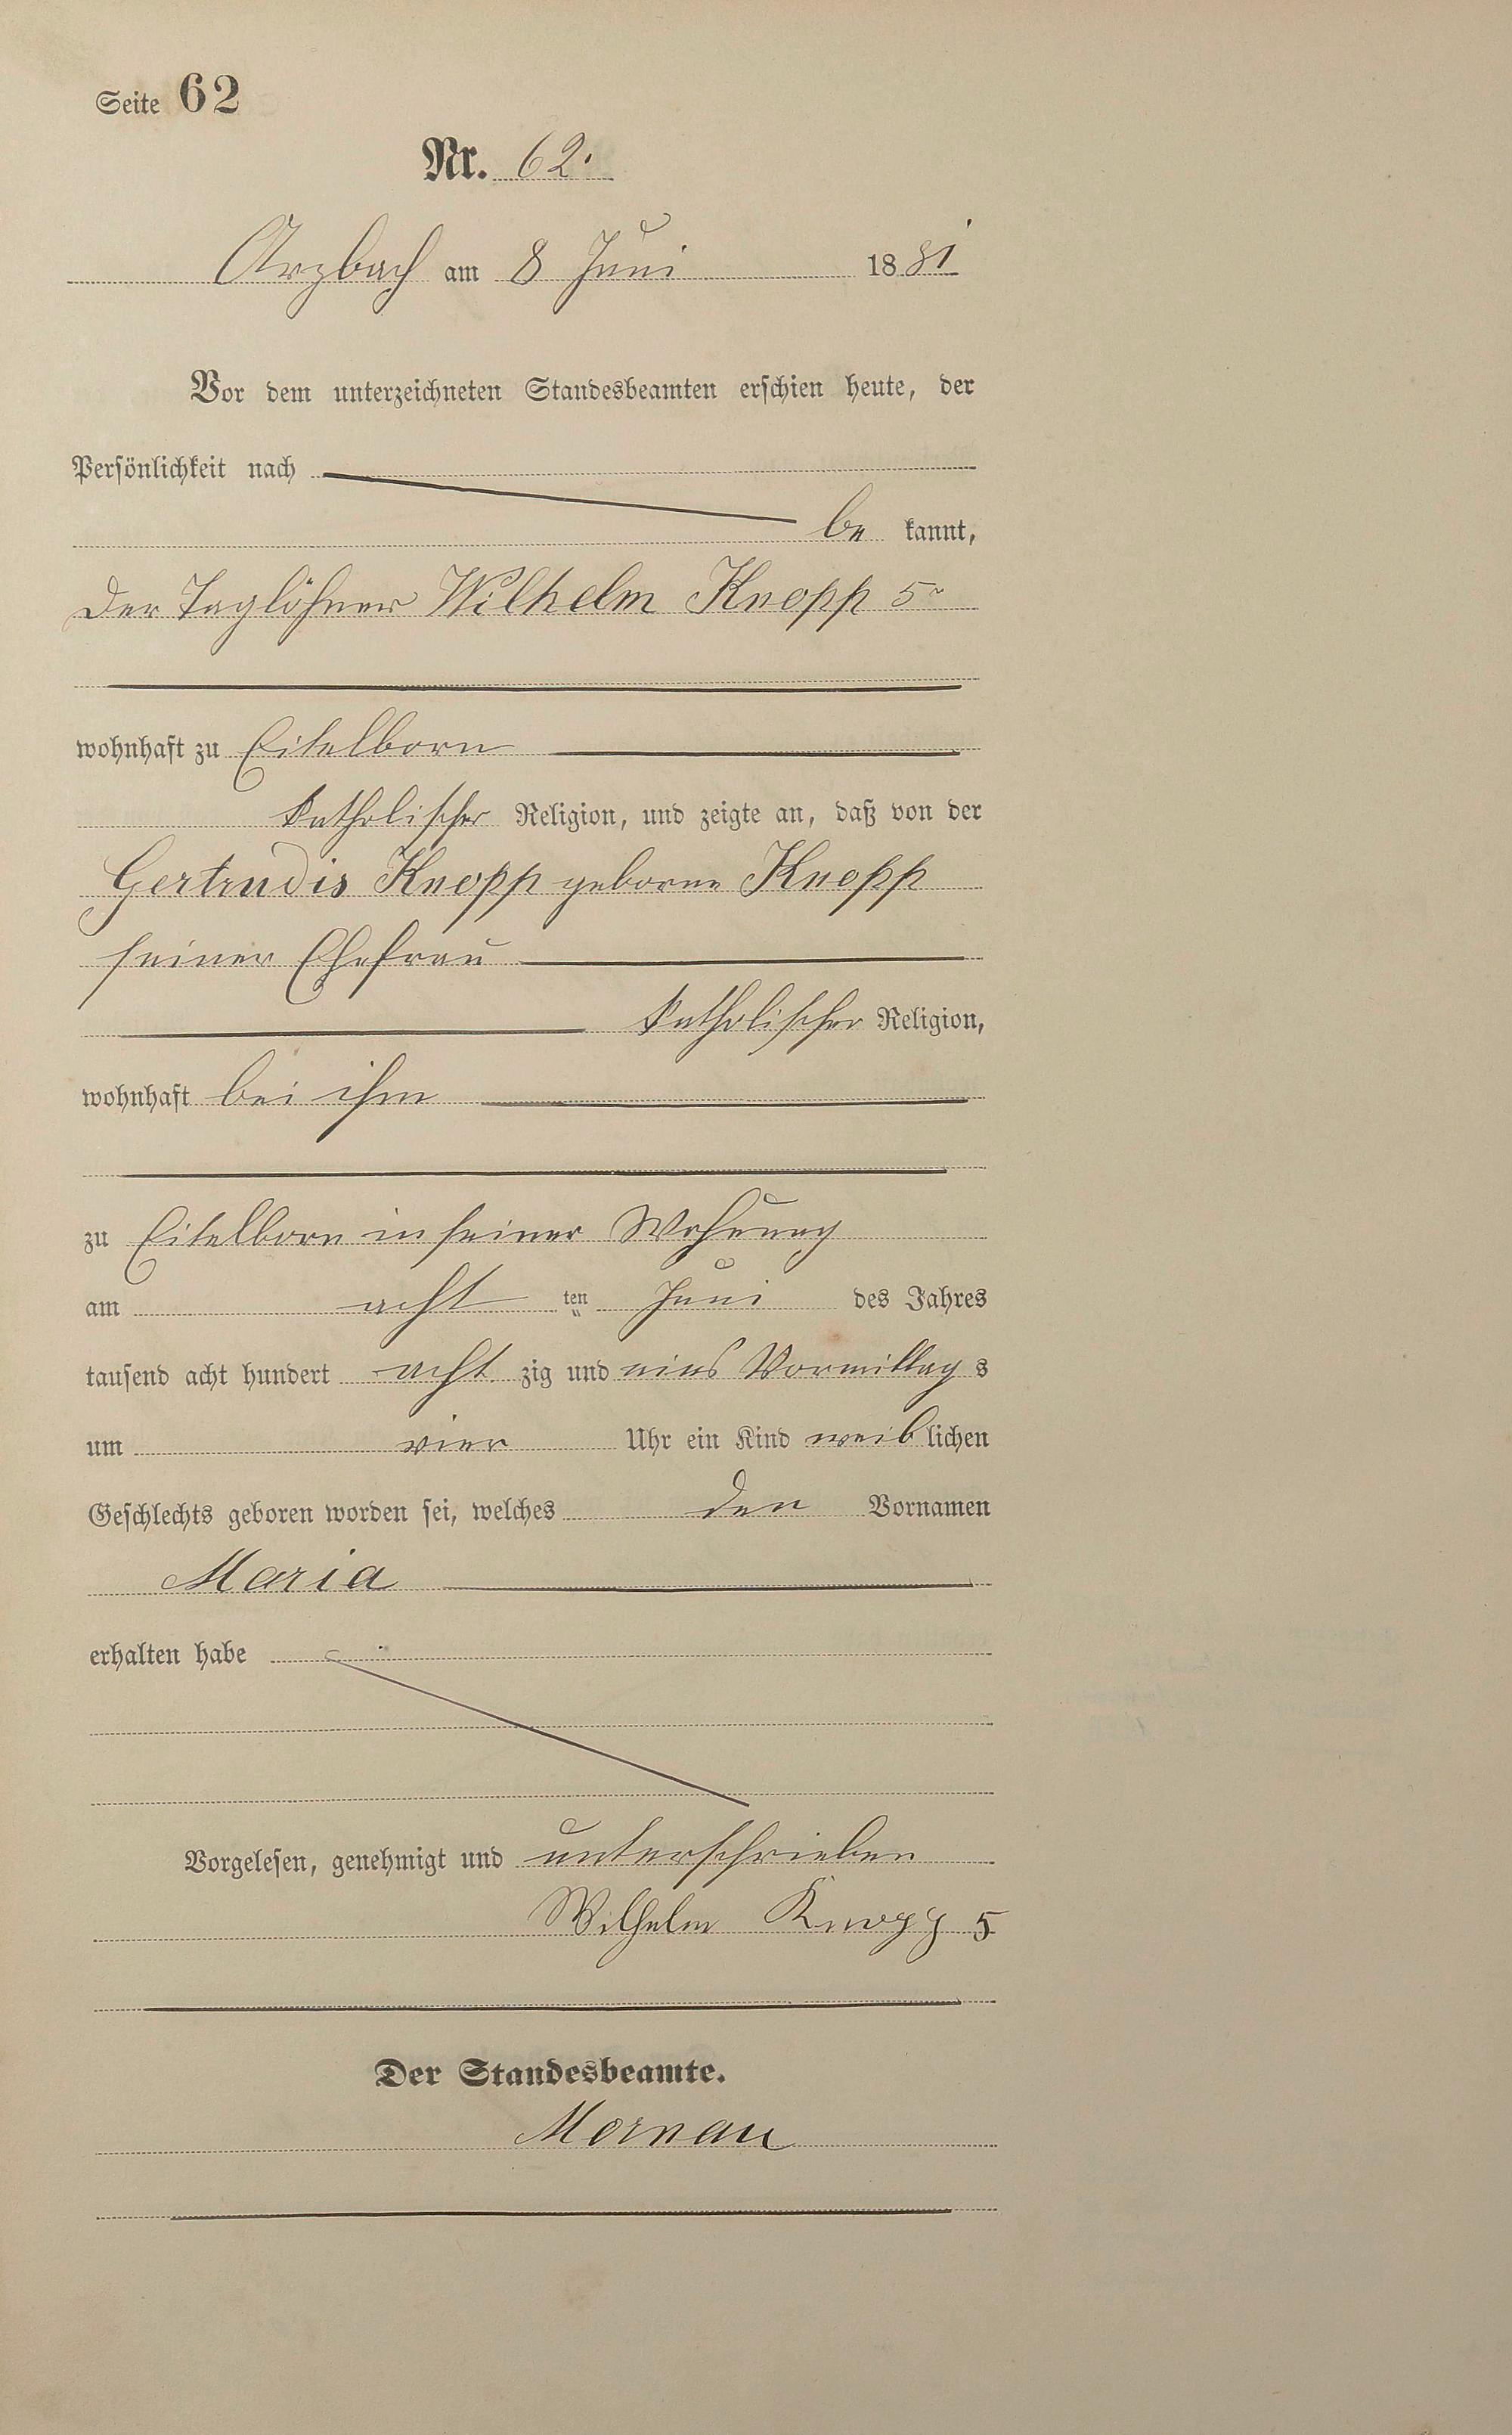 Seite 62
Nr. 62.
Arzbach am 8 Juni 1881
Vor dem unterzeichneten Standesbeamten erschien heute, der
Persönlichkeit nach
be kannt,
der Taglöhner Wilhelm Knopp 5r
wohnhaft zu Eitelborn
katholischer Religion, und zeigte an, daß von der
Gertrudis Knopp geborne Knopp
seiner Ehefrau
katholischer Religion,
wohnhaft bei ihm
zu Eitelborn in seiner Wohnung
am acht ten Juni des Jahres
tausend acht hundert acht zig und eins Vormittag s
um vier Uhr ein Kind weib lichen
Geschlechts geboren worden sei, welches den Vornamen
Maria
erhalten habe
Vorgelesen, genehmigt und unterschrieben
Wilhelm Knopp 5
Der Standesbeamte.
Mornau